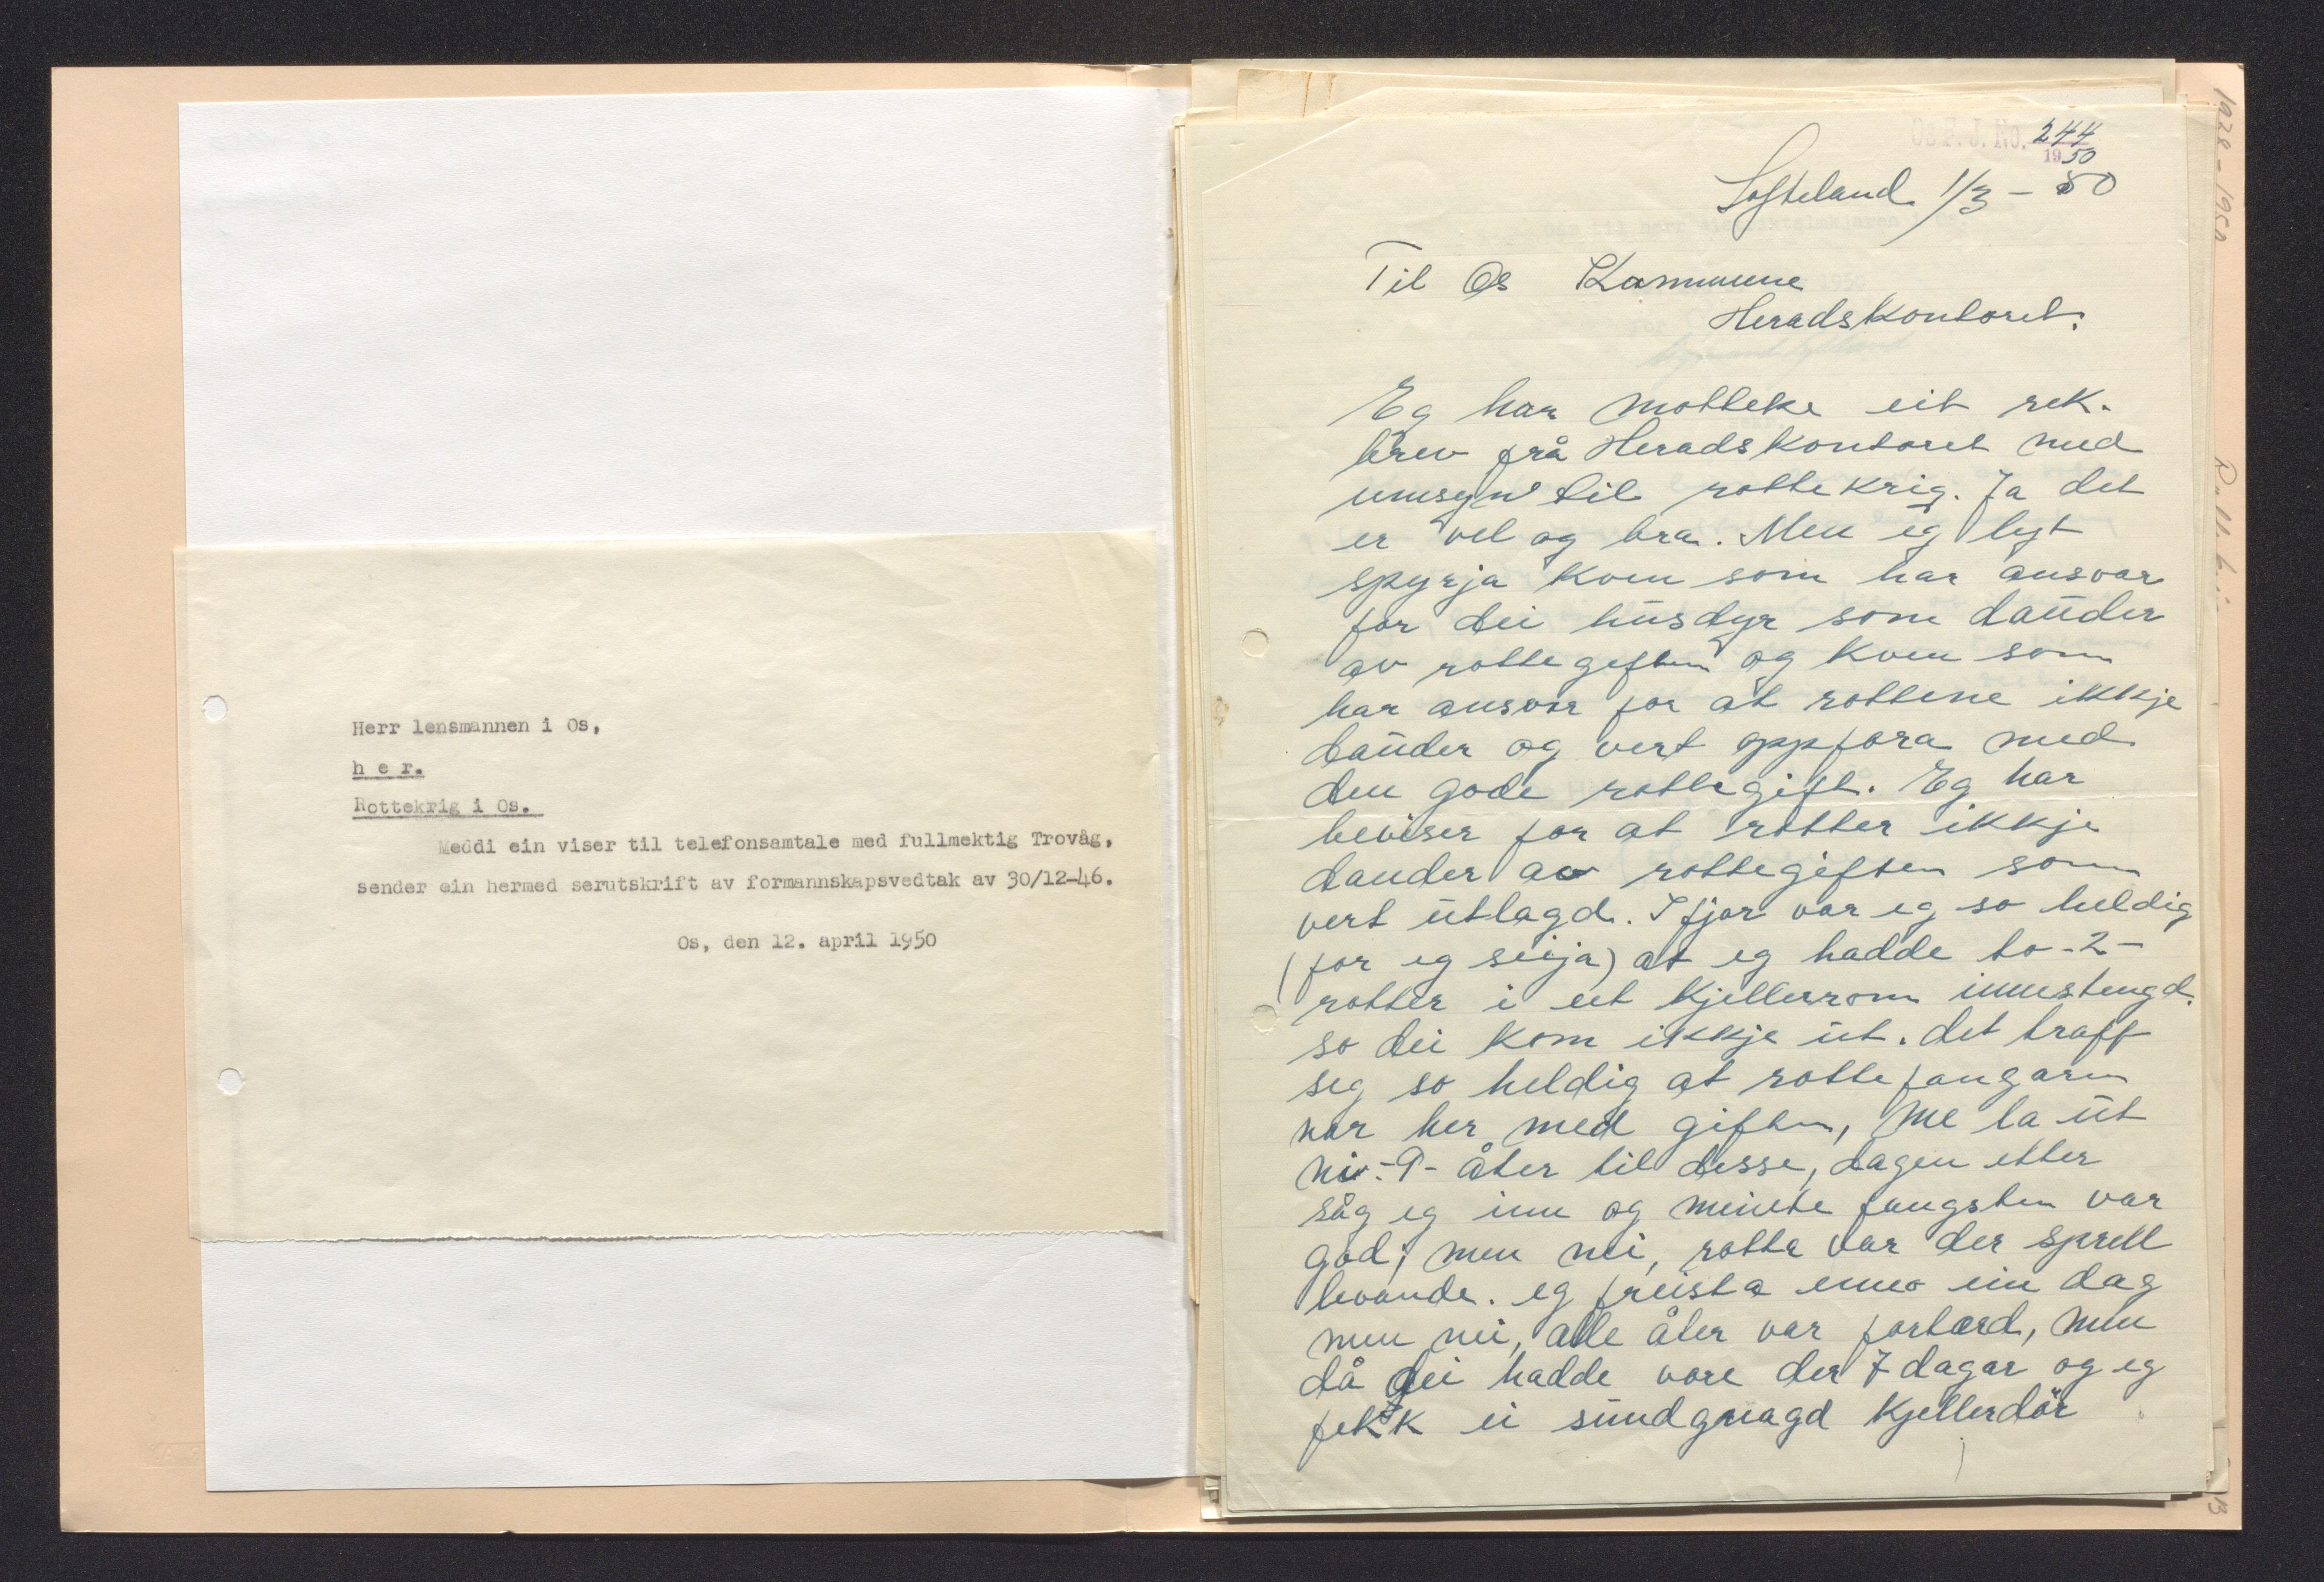 Herr lensmannen i Os,
h e r.
Rottekrig i Os.
Meddi ein viser til telefonsamtale med fullmektig Trovåg,
sender ein hermed serutskrift av formannskapsvedtak av 30/12-46.
Os, den 12. april 1950
Os F. J. No. 244
1950
Søfteland 1/3 - 50
Til Os Kommune
Heradskontoret.
Eg har motteke eit rek.
brev frå Heradskontoret med
umsyn til rottekrig. Ja det
er vel og bra. Men eg lyt
spyrja kven som har ansvar
for dei husdyr som dauder
av rottegiften og kven som
har ansvar for at rottene ikkje
dauder og vert oppfora med
den gode rottegift. Eg har
beviser for at rotter ikkje
dauder av rottegiften som
vert utlagd. I fjor var eg so heldig
(for eg seija) at eg hadde to -2-
rotter i eit kjellerrom innestengd.
so dei kom ikkje ut. det traff
seg so heldig at rottefangaren
var her med giften, me la ut
ni -9- åter til desse, dagen etter
såg eg inn og meinte fangsten var
god, men nei, rotta var der sprell
levande. eg freista enno ein dag
men nei, alle åter var fortærd, men
då dei hadde vore der 7 dagar og eg
fekk ei sundgnagd kjellerdör
1928 - 1950